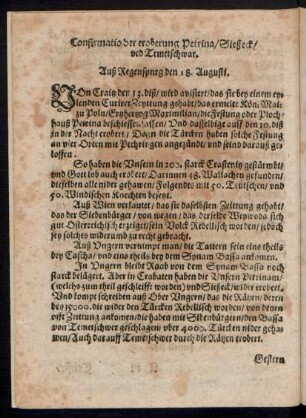 Confirmatio der eroberung Petrina/ Sisseck/
vnd Temeschwar.
Auß Regenspurg den 18. Augusti.
VOn Craig den 13. diß/ wird avisiert/ das sie bey einem ey-
lenden Curirer Zeyttung gehabt/ das ermelte Kön: Mai:
zu Poln/ Ertzhertzog Maximilian/ die Festung oder Ploch-
hauß Petrina beschiessen lassen/ Vnd dasselbige auff den 10. diß
in der Nacht erobert/ Dagen die Türcken haben solche Festung
an vier Orten mit Pech ringen angezündt/ vnd seind darauß ge-
loffen.
So haben die Vnsern in 200. starck Crastenitz gestürmbt/
vnd Gott lob auch erobert/ Darinnen 48. Wallachen gefunden/
dieselben alle nider gehawen/ Folgendts mit 50. Teutschen/ vnd
50. Windischen Knechten besetzt.
Auß Wien verlauttet/ das sie daselbsten Zeittung gehabt/
das der Siebenbürger/ von wegen/ das derselbe Weywoda sich
gut Osterreichisch erzeiget/ sein Volck Rebellisch worden/ jedoch
jtzo solches widerumb zu recht gebracht.
Auß Vngern vernimpt man/ die Tattern sein eins theils
bey Cascha/ vnd eins theils bey dem Synam Bassa ankomen.
In Vngern bleibt Raab von dem Synam Bassa noch
starck belägert. Aber in Crabaten haben die Vnsern Petrinam/
(welchs zum theil geschleifft worden) vnd Sisseck/ wider erobert.
Vnd kompt schreiben auß Ober Vngern/ das die Räzen/ deren
bey 15000. die wider den Türcken Rebellisch worden/ von denen
offt Zeittung ankomen/ die haben mit Sibenbürgern/ den Bassa
von Temeschwer geschlagen/ vber 4000. Türcken nider geha-
wen/ Auch darauff Temeschwer durch die Räzen erobert.
Gestern